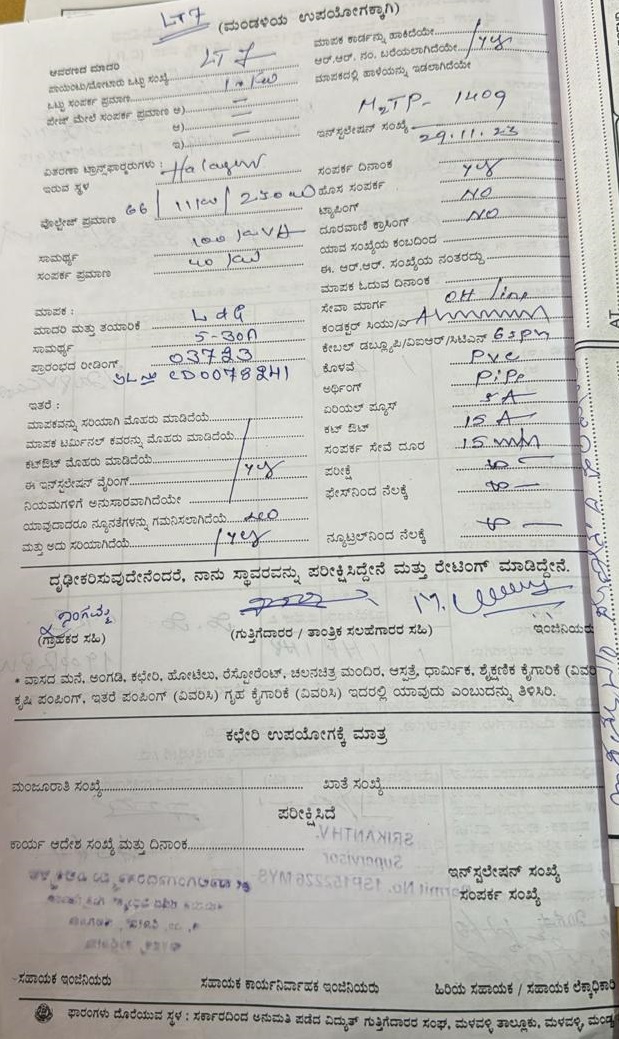 LT7 (ಮಂಡಳಿಯ ಉಪಯೋಗಕ್ಕಾಗಿ)
ಆವರಣದ ಮಾದರಿ LT 7
ಮಾಪಕ ಕಾರ್ಡನ್ನು ಹಾಕಿದೆಯೇ
ಪಾಯಿಂಟು/ಮೋಟಾರು ಒಟ್ಟು ಸಂಖ್ಯೆ
ಆರ್.ಆರ್. ನಂ. ಬರೆಯಲಾಗಿದೆಯೇ yes
ಒಟ್ಟು ಸಂಪರ್ಕ ಪ್ರಮಾಣ
ಮಾಪಕದಲ್ಲಿ ಹಾಳೆಯನ್ನು ಇಡಲಾಗಿದೆಯೇ
ಪೇಜ್ ಮೇಲೆ ಸಂಪರ್ಕ ಪ್ರಮಾಣ ಅ) —
ಆ) —
ಇ) —
ಇನ್‌ಸ್ಟಲೇಷನ್ ಸಂಖ್ಯೆ M2TP- 1409
ವಿತರಣಾ ಟ್ರಾನ್ಸ್‌ಫಾರ್ಮರುಗಳು :
ಇರುವ ಸ್ಥಳ Halagur
ಸಂಪರ್ಕ ದಿನಾಂಕ 29.11.23
ಹೊಸ ಸಂಪರ್ಕ yes
ವೊಲ್ಟೇಜ್ ಪ್ರಮಾಣ 66/11KV/250
ಟ್ಯಾಪಿಂಗ್ NO
ದೂರವಾಣಿ ಕ್ರಾಸಿಂಗ್ NO
ಸಾಮರ್ಥ್ಯ 100 KVA
ಯಾವ ಸಂಖ್ಯೆಯ ಕಂಬದಿಂದ
ಸಂಪರ್ಕ ಪ್ರಮಾಣ 40 KW
ಈ. ಆರ್.ಆರ್. ಸಂಖ್ಯೆಯ ನಂತರದ್ದು
ಮಾಪಕ ಓದುವ ದಿನಾಂಕ
ಮಾಪಕ :
ಸೇವಾ ಮಾರ್ಗ OH line
ಮಾದರಿ ಮತ್ತು ತಯಾರಿಕೆ L&G
ಕಂಡಕ್ಟರ್ ಸಿಯು/ಎ
ಸಾಮರ್ಥ್ಯ 5-30A
ಕೇಬಲ್ ಡಬ್ಲ್ಯೂಪಿ/ವಿಐಆರ್/ಸಿಟಿಎನ್
ಪ್ರಾರಂಭದ ರೀಡಿಂಗ್ 03723
ಕೊಳವೆ PVC
SL No CD0078241
ಅರ್ಥಿಂಗ್ PIPe
ಇತರೆ :
ಏರಿಯಲ್ ಪ್ಯೂಸ್ 5A
ಮಾಪಕವನ್ನು ಸರಿಯಾಗಿ ಮೊಹರು ಮಾಡಿದೆಯೆ
ಕಟ್ ಔಟ್ 15 A
ಮಾಪಕ ಟರ್ಮಿನಲ್ ಕವರನ್ನು ಮೊಹರು ಮಾಡಿದೆಯೆ
ಸಂಪರ್ಕ ಸೇವೆ ದೂರ 15 mm
ಕಟ್‌ಔಟ್ ಮೊಹರು ಮಾಡಿದೆಯೆ yes
ಪರೀಕ್ಷೆ
ಈ ಇನ್‌ಸ್ಟಲೇಷನ್ ವೈರಿಂಗ್
ಫೇಸ್‌ನಿಂದ ನೆಲಕ್ಕೆ
ನಿಯಮಗಳಿಗೆ ಅನುಸಾರವಾಗಿದೆಯೇ
ಯಾವುದಾದರೂ ನ್ಯೂನತೆಗಳನ್ನು ಗಮನಿಸಲಾಗಿದೆಯೆ
ಮತ್ತು ಅದು ಸರಿಯಾಗಿದೆಯೆ yes
ನ್ಯೂಟ್ರಲ್‌ನಿಂದ ನೆಲಕ್ಕೆ
ದೃಢೀಕರಿಸುವುದೇನೆಂದರೆ, ನಾನು ಸ್ಥಾವರವನ್ನು ಪರೀಕ್ಷಿಸಿದ್ದೇನೆ ಮತ್ತು ರೇಟಿಂಗ್ ಮಾಡಿದ್ದೇನೆ.
(ಗ್ರಾಹಕರ ಸಹಿ) (ಗುತ್ತಿಗೆದಾರರ / ತಾಂತ್ರಿಕ ಸಲಹೆಗಾರರ ಸಹಿ) ಇಂಜಿನಿಯರು
• ವಾಸದ ಮನೆ, ಅಂಗಡಿ, ಕಛೇರಿ, ಹೋಟೆಲು, ರೆಸ್ಟೋರೆಂಟ್, ಚಲನಚಿತ್ರ ಮಂದಿರ, ಆಸ್ಪತ್ರೆ, ಧಾರ್ಮಿಕ, ಶೈಕ್ಷಣಿಕ ಕೈಗಾರಿಕೆ (ವಿವರಿ
ಕೃಷಿ ಪಂಪಿಂಗ್, ಇತರೆ ಪಂಪಿಂಗ್ (ವಿವರಿಸಿ) ಗೃಹ ಕೈಗಾರಿಕೆ (ವಿವರಿಸಿ) ಇದರಲ್ಲಿ ಯಾವುದು ಎಂಬುದನ್ನು ತಿಳಿಸಿರಿ.
ಕಛೇರಿ ಉಪಯೋಗಕ್ಕೆ ಮಾತ್ರ
ಮಂಜೂರಾತಿ ಸಂಖ್ಯೆ ಖಾತೆ ಸಂಖ್ಯೆ
ಪರೀಕ್ಷಿಸಿದೆ
ಕಾರ್ಯ ಆದೇಶ ಸಂಖ್ಯೆ ಮತ್ತು ದಿನಾಂಕ
ಇನ್‌ಸ್ಟಲೇಷನ್ ಸಂಖ್ಯೆ
ಸಂಪರ್ಕ ಸಂಖ್ಯೆ
SRIKANTH.V.
Supervisor
Permit No. 1SP152226 MYS
ಸಹಾಯಕ ಇಂಜಿನಿಯರು ಸಹಾಯಕ ಕಾರ್ಯನಿರ್ವಾಹಕ ಇಂಜಿನಿಯರು ಹಿರಿಯ ಸಹಾಯಕ / ಸಹಾಯಕ ಲೆಕ್ಕಾಧಿಕಾರಿ
ಫಾರಂಗಳು ದೊರೆಯುವ ಸ್ಥಳ : ಸರ್ಕಾರದಿಂದ ಅನುಮತಿ ಪಡೆದ ವಿದ್ಯುತ್ ಗುತ್ತಿಗೆದಾರರ ಸಂಘ, ಮಳವಳ್ಳಿ ತಾಲ್ಲೂಕು, ಮಳವಳ್ಳಿ, ಮಂಡ್ಯ